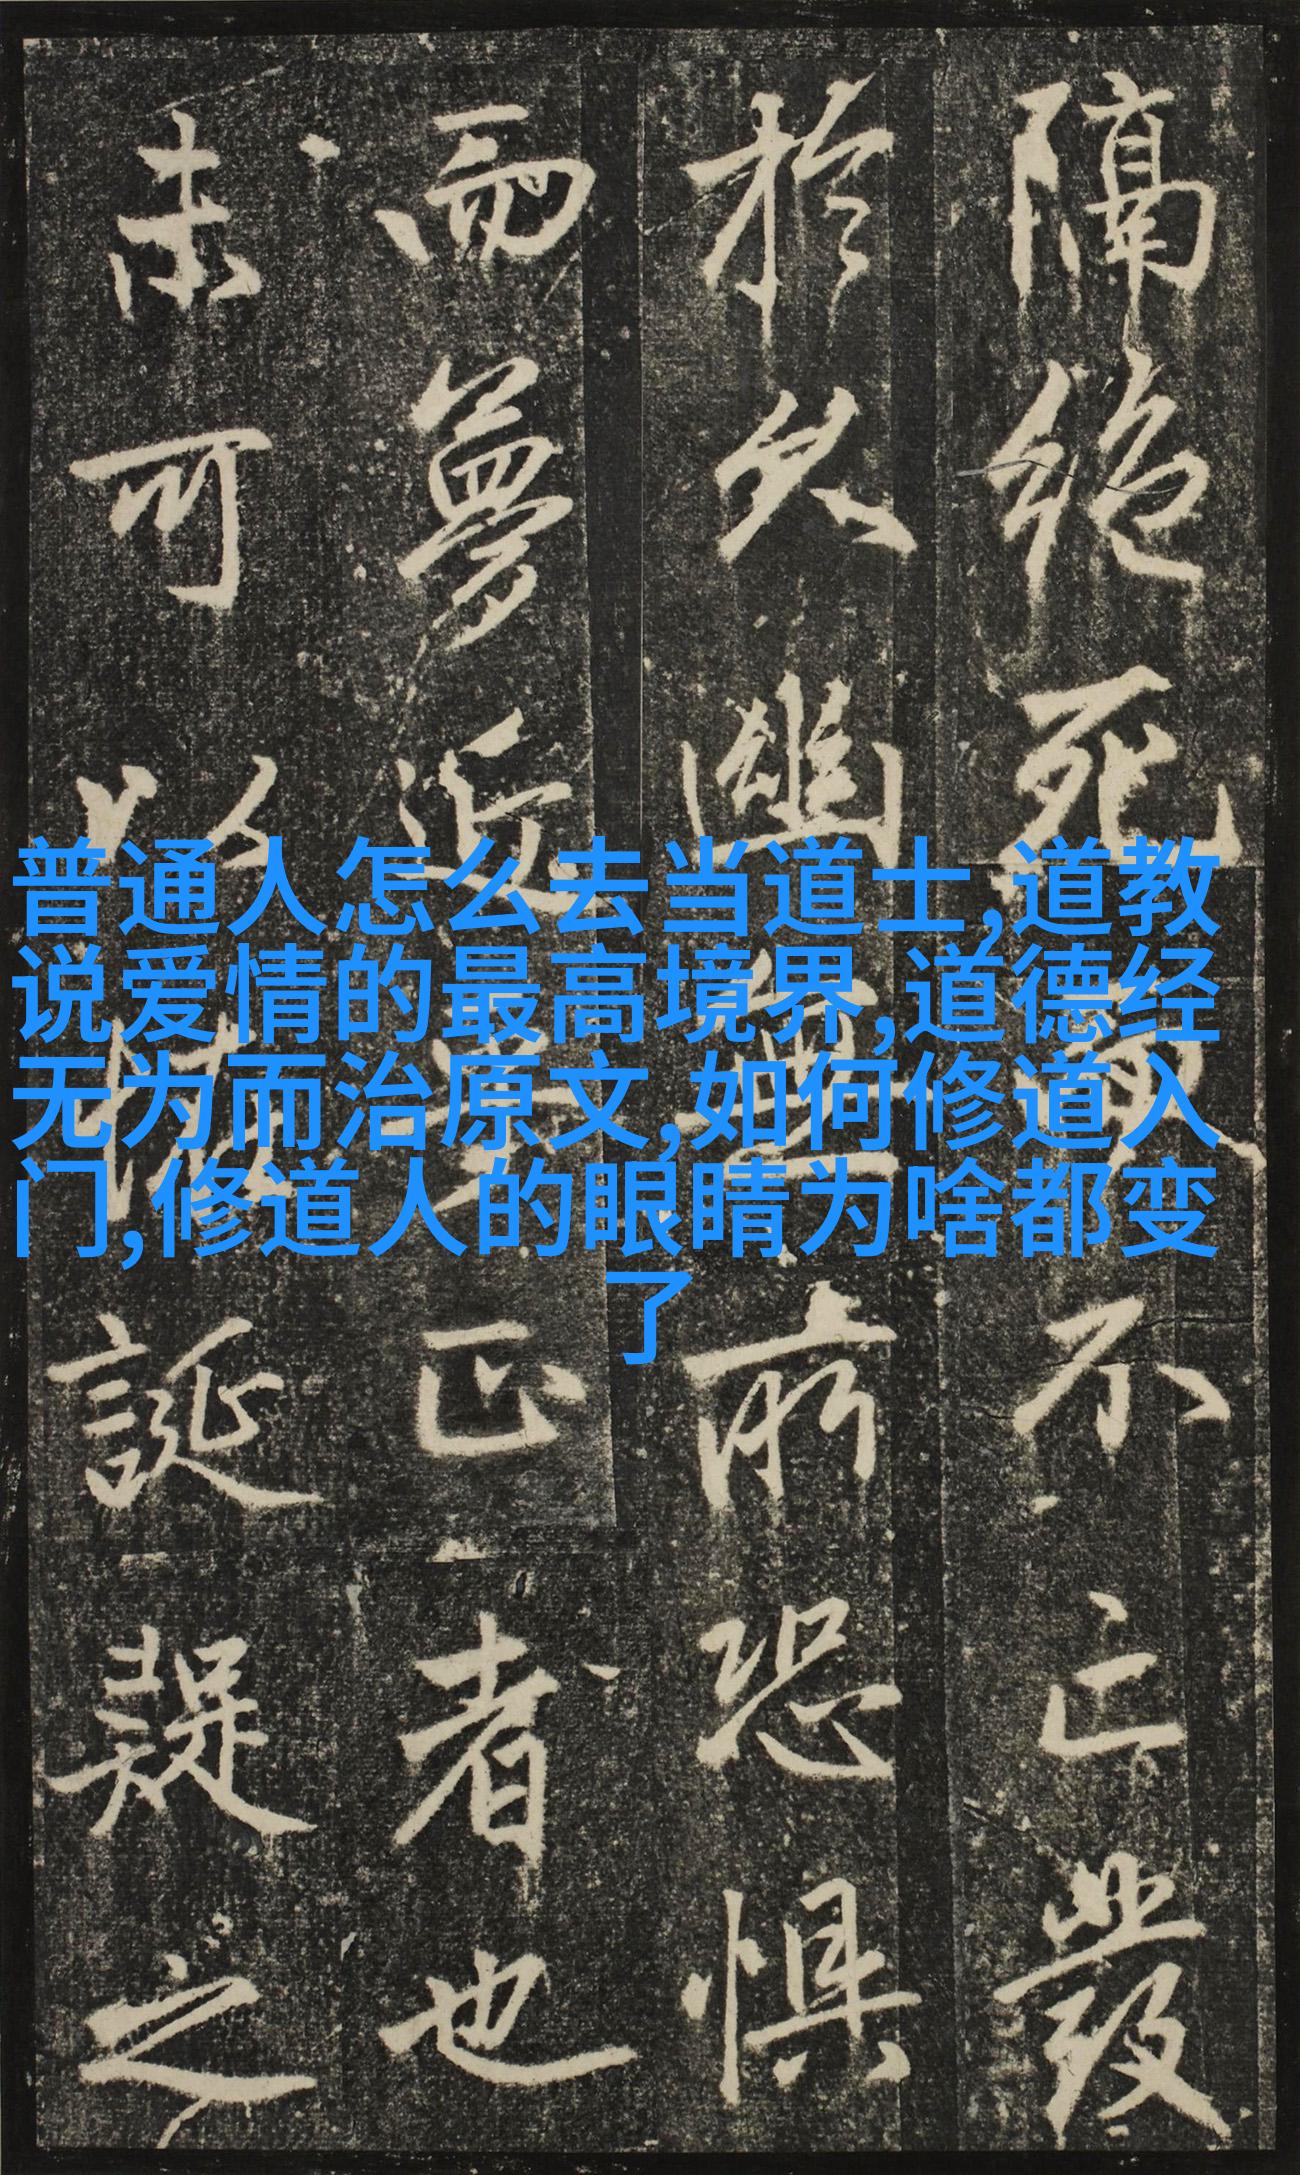 隔絕死不亡發
於久幽恐懼
而夢近正者也
未可以誕疑之
普通人怎么去当道士,道教
说爱情的最高境界,道德经
无为而治原文,如何修道入
门,修道人的眼睛为啥都变
了